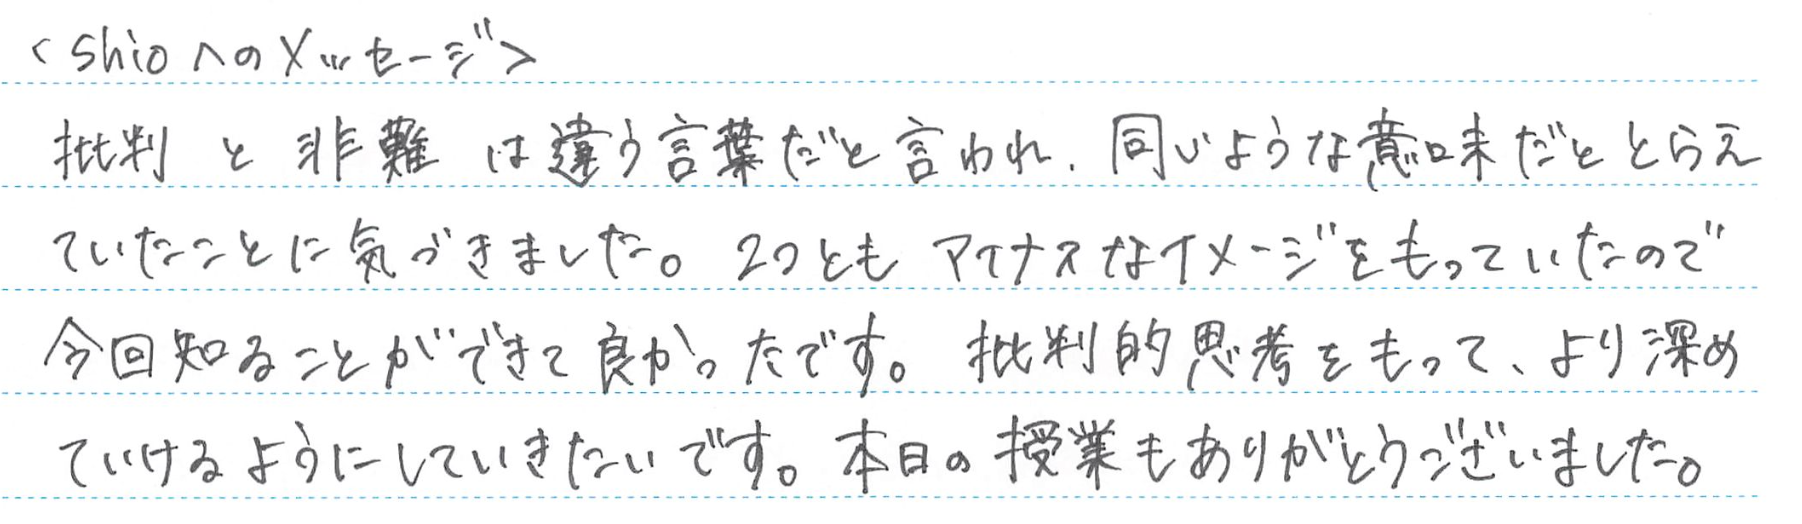 <shioへのメッセージ>
批判と非難は違う言葉だと言われ、同じような意味だととらえ
ていたことに気づきました。2つともマイナスなイメージをもっていたので
今回知ることができて良かったです。批判的思考をもって、より深め
ていけるようにしていきたいです。本日の授業もありがとうございました。